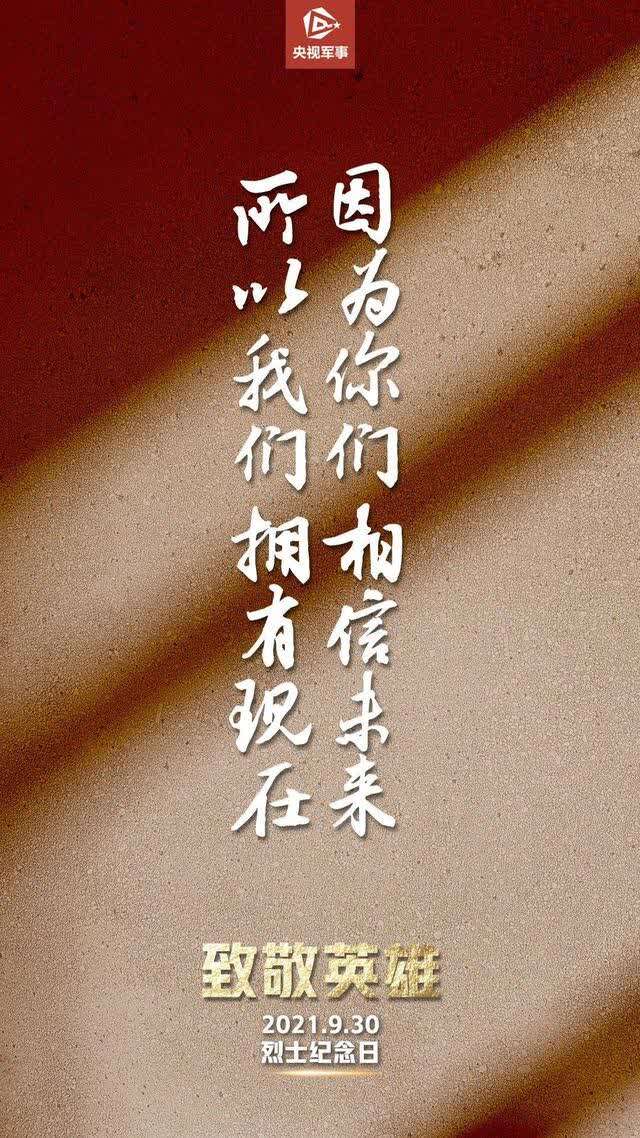 央视军事
因为你们相信未来
所以我们拥有现在
致敬英雄
2021.9.30
烈士纪念日